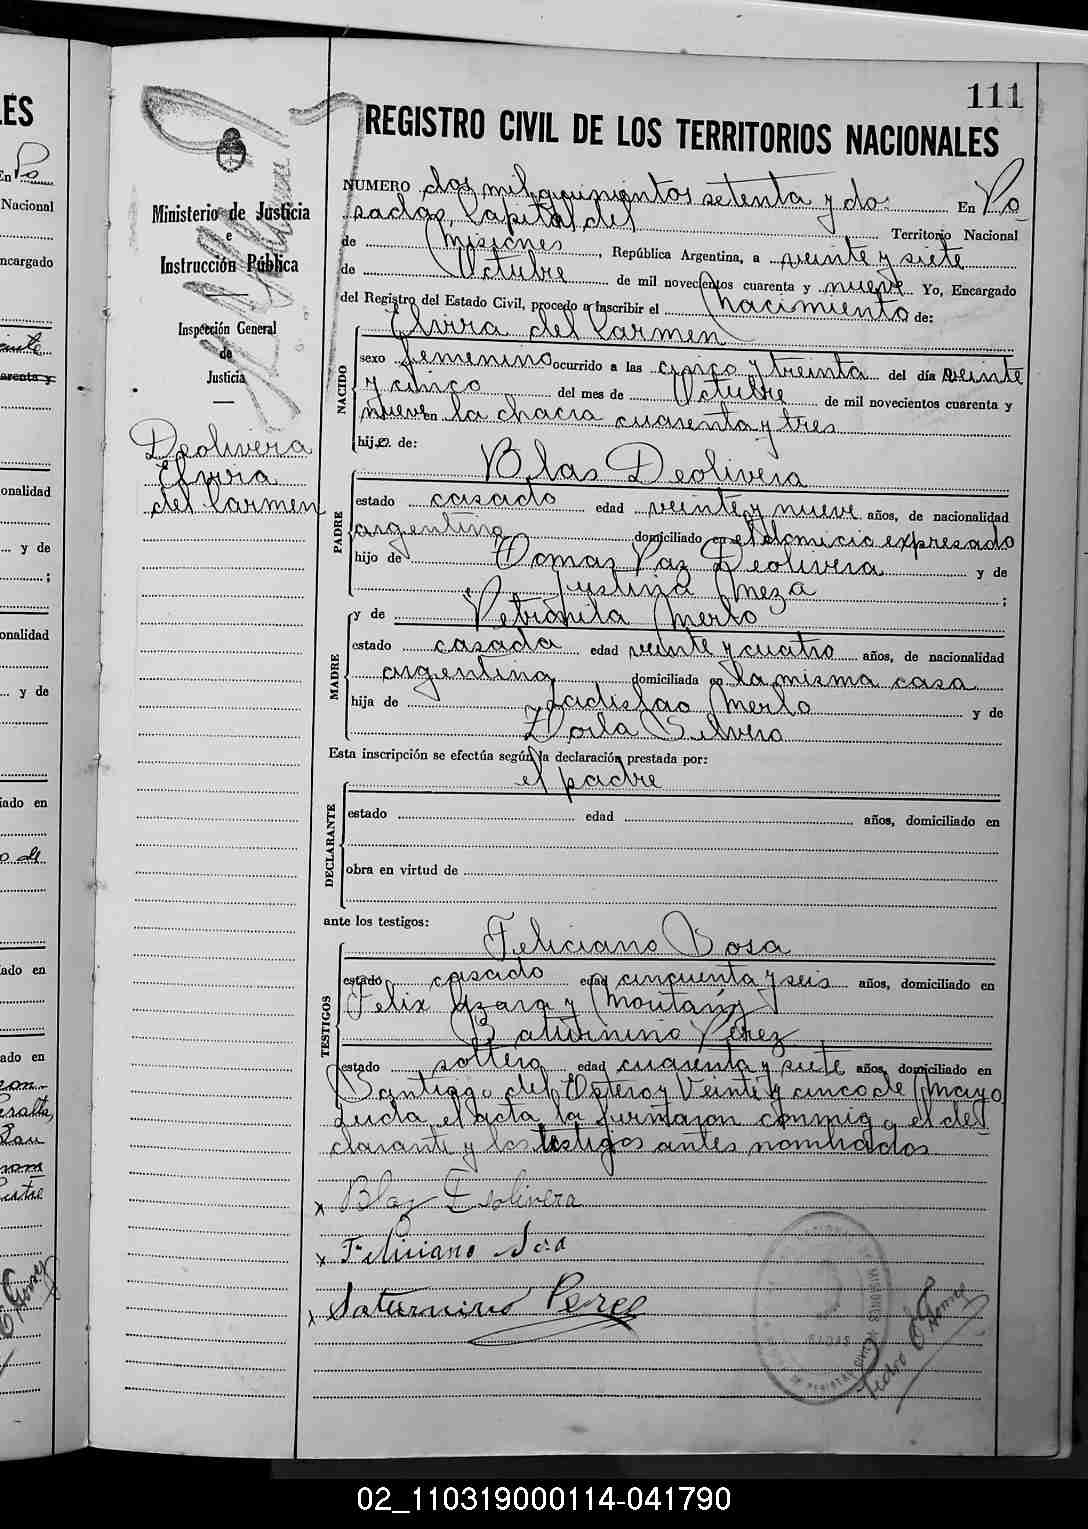 111
REGISTRO CIVIL DE LOS TERRITORIOS NACIONALES
Ministerio de Justicia
e
Instrucción Pública
Inspección General
de
Justicia
Deolivera
Elvira
del Carmen
NUMERO dos mil quinientos setenta y dos En Po
sadas, Capital del Territorio Nacional
de Misiones, República Argentina, a veinte y siete
de Octubre de mil novecientos cuarenta y nueve Yo, Encargado
del Registro del Estado Civil, procedo a inscribir el nacimiento de:
NACIDO
Elvira del Carmen
sexo femenino ocurrido a las cinco y treinta del día veinte
y cinco del mes de Octubre de mil novecientos cuarenta y
nueve en la chacra cuarenta y tres
hija de:
PADRE
Blas Deolivera
estado casado edad veinte y nueve años, de nacionalidad
argentina domiciliado en el domicio expresado
hijo de Tomas Paz Deolivera y de
Justina Meza ;
MADRE
y de Petronila Merlo
estado casada edad veinte y cuatro años, de nacionalidad
argentina domiciliada en la misma casa
hija de Ladislao Merlo y de
Zoila Silvero
Esta inscripción se efectúa según la declaración prestada por:
el padre
DECLARANTE
estado edad años, domiciliado en
obra en virtud de
ante los testigos:
TESTIGOS
Feliciano Sosa
estado casado edad cincuenta y seis años, domiciliado en
Felix Azara y
Saturnino Pérez
estado soltero edad cuarenta y siete años, domiciliado en
Santiago del Estero y Veinte y cinco de Mayo
Leida el acta la firmaron conmigo el de
clarante y los testigos antes nombrados
x Blaz Deolivera
x Feliciano Sosa
x Saturnino Perez
Pedro Gomez
02_110319000114-041790